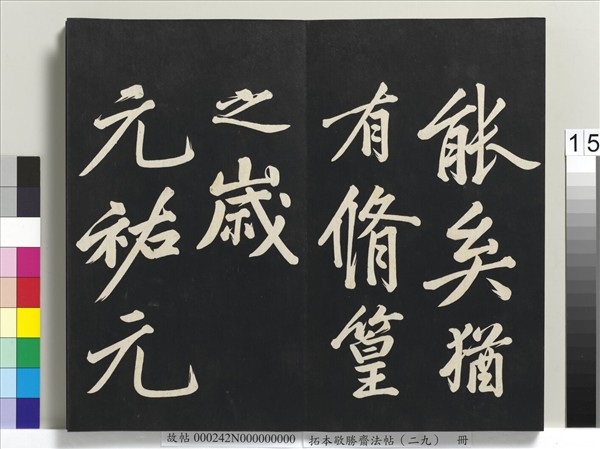 能矣猶
有脩篁
之歲
元祐元
15
故帖 000242N000000000 拓本敬勝齋法帖（二九） 冊